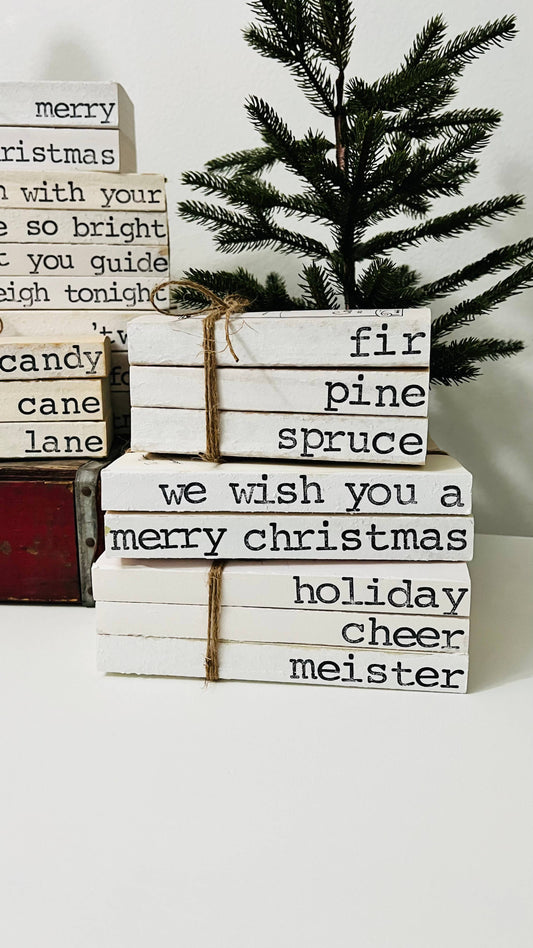 merry
ristmas
with your
so bright
you guide
eigh tonight
't
candy
cane
lane
fir
pine
spruce
we wish you a
merry christmas
holiday
cheer
meister